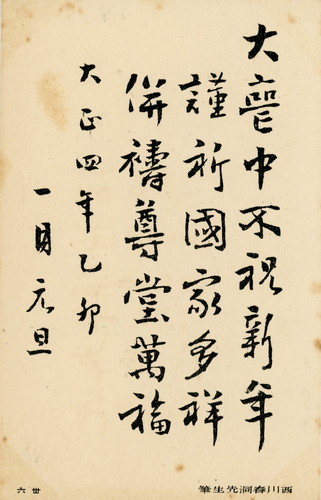 大喪中不祝新年
謹祈國家多祥
併禱尊堂萬福
大正四年乙卯
一月元旦
西川春洞先生筆
丗六